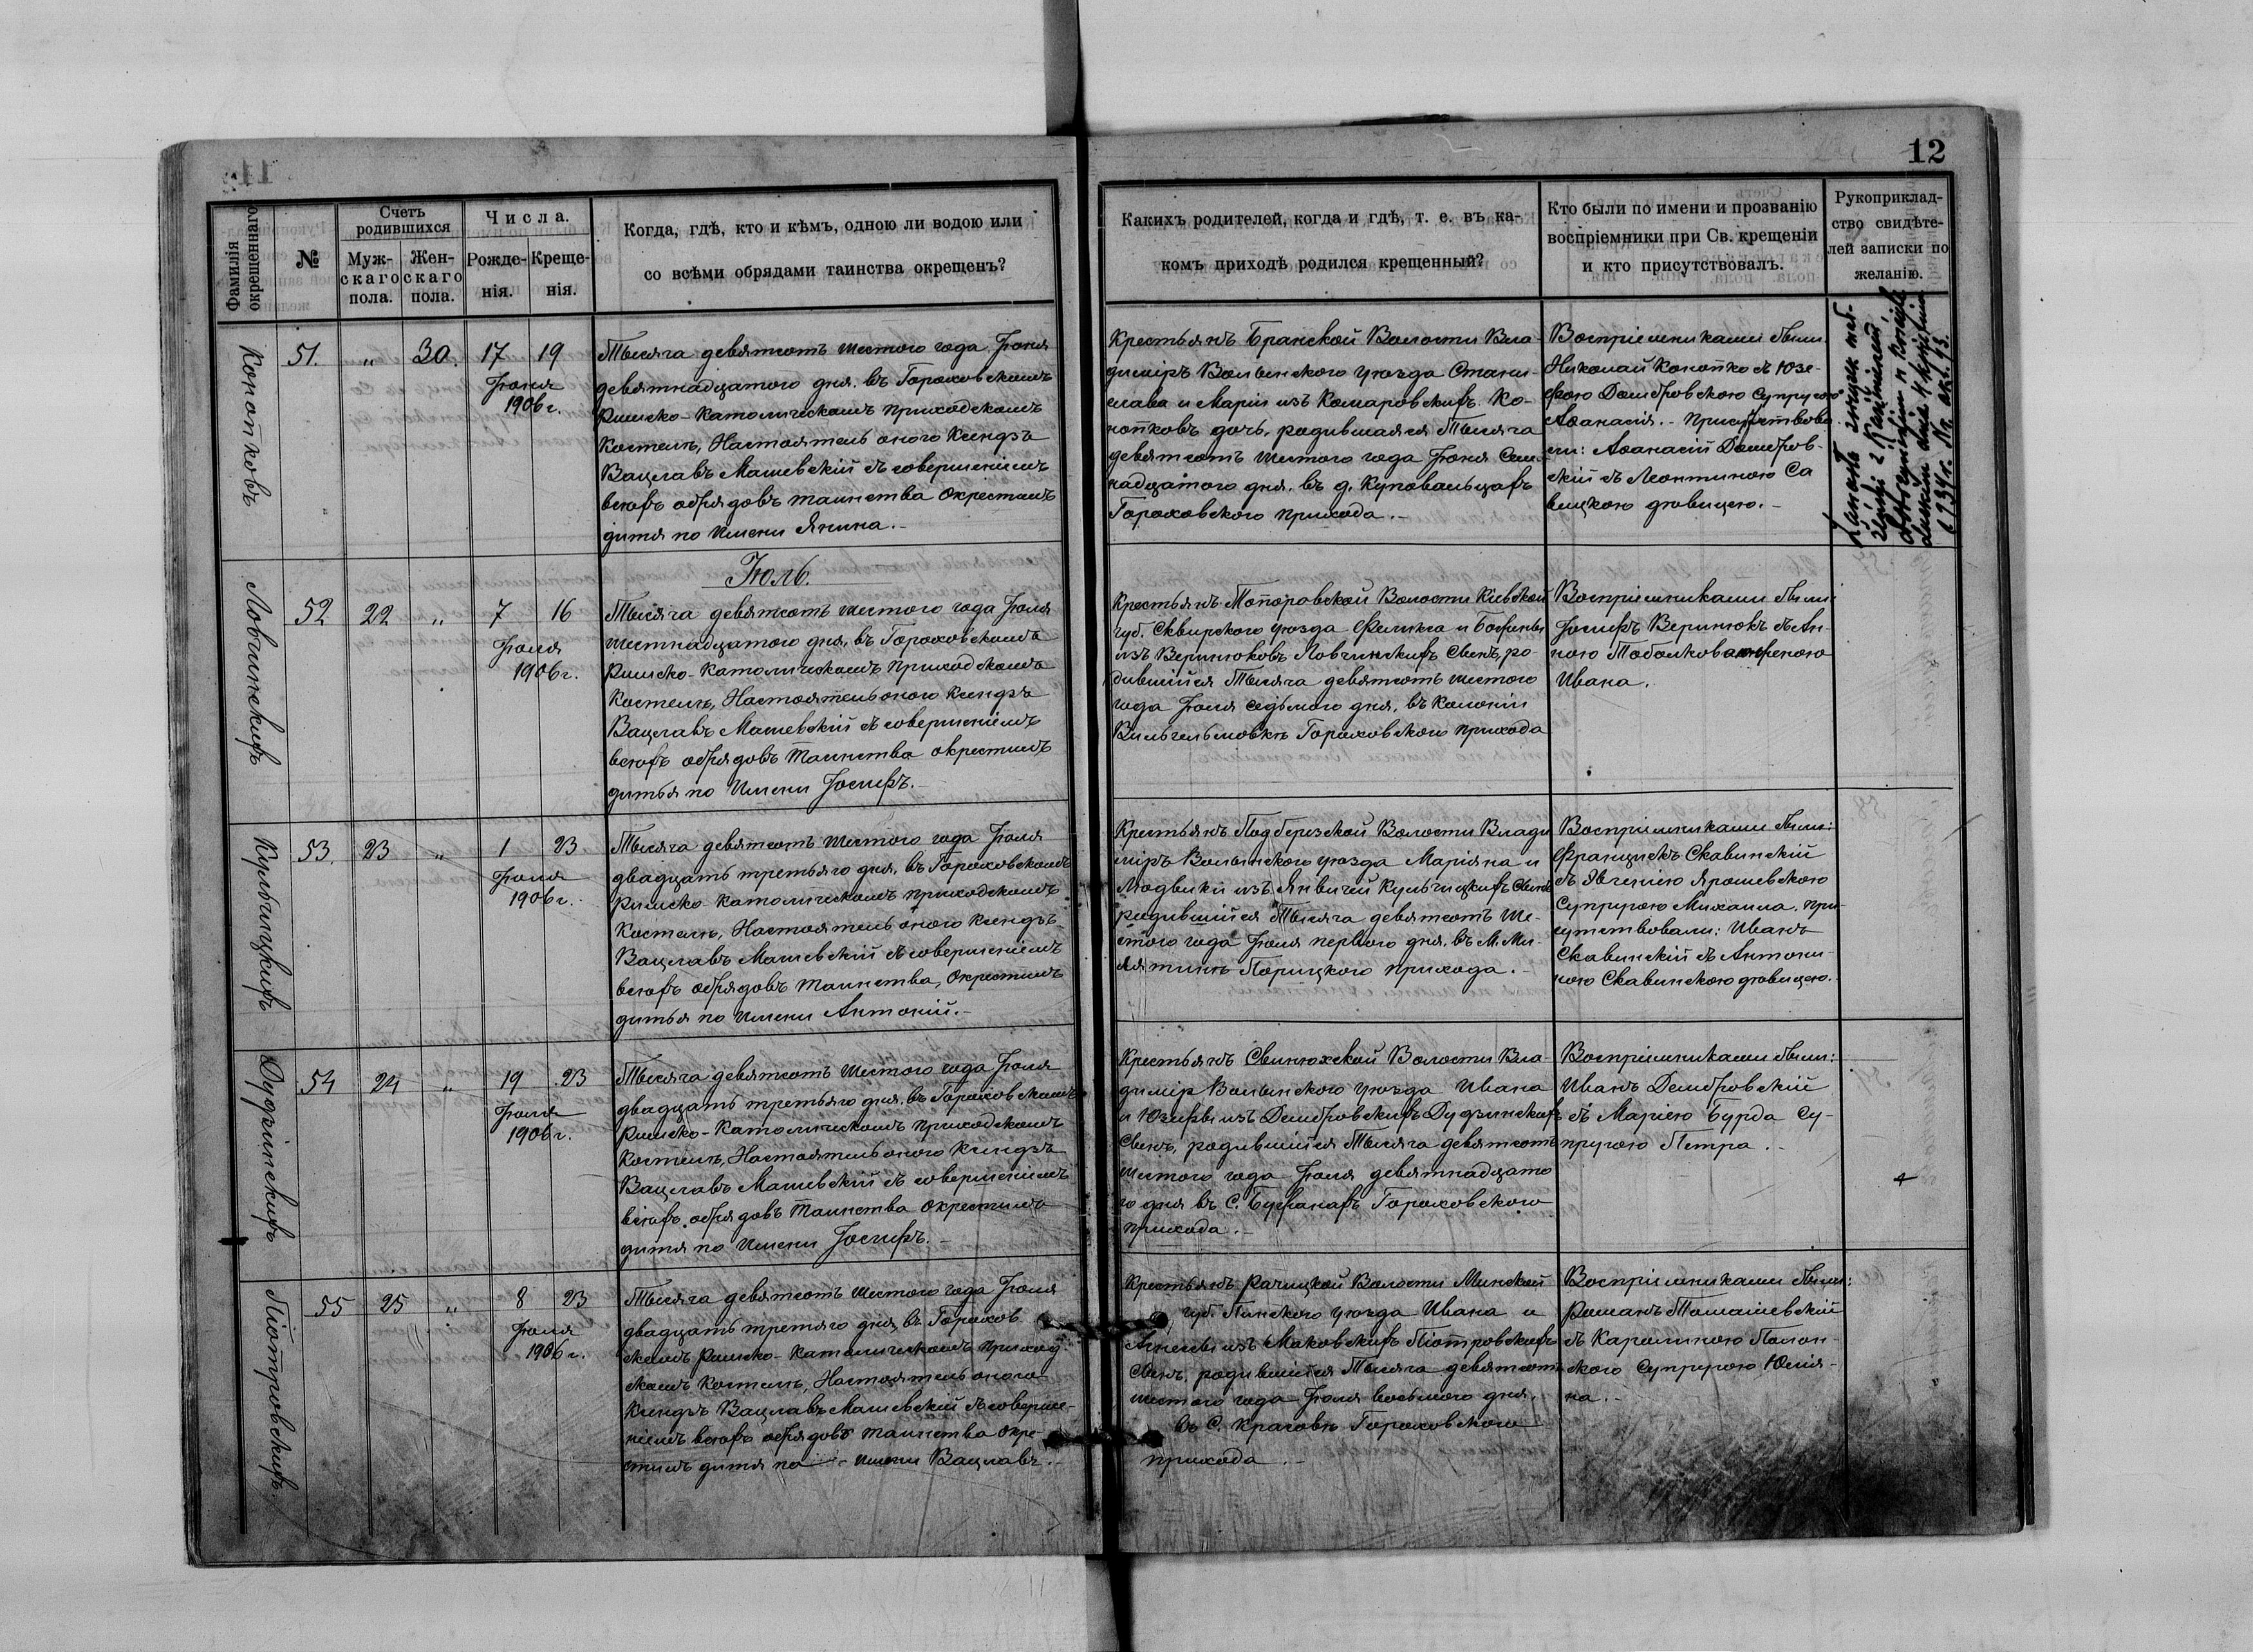 12
Фамилія окрещеннаго
№
Счетъ родившихся
Муж-
скаго
пола.
Жен-
скаго
пола.
Числа.
Рожде-
нія.
Креще-
нія.
Когда, гдѣ, кто и кѣмъ, одною ли водою или
со всѣми обрядами таинства окрещенъ?
Какихъ родителей, когда и гдѣ, т. е. въ ка-
комъ приходѣ родился крещенный?
Кто были по имени и прозванію
воспріемники при Св. крещеніи
и кто присутствовалъ.
Рукоприклад-
ство свидѣте-
лей записки по
желанію.
Копотковъ
51. „ 30. 17 19
Іюня
1906 г.
Тысяча девятьсотъ шестого года Іюня
девятнадцатого дня, въ Гороховскомъ
Римско-Католическомъ приходскомъ
Костелѣ, Настоятель оного Ксендзъ
Вацлавъ Машевскій съ совершеніемъ
всѣхъ обрядовъ таинства Окрестилъ
дитя по Имени Янина.-
Крестьянъ Бранской Волости Вла-
диміръ Волынского уѣзда Стани-
слава и Маріи изъ Комаровскихъ Ко-
потковъ дочь, родившаяся Тысяча
девятьсотъ шестого года Іюня Сем-
надцатого дня, въ д. Куповальцахъ
Гороховского прихода.-
Воспріемниками были
Николай Копотко съ Юзе-
фою Домбровскою Супругою
Афанасія.- Присутствова
ли: Афанасій Домбров-
скій съ Леонтиною Са
вицкою дѣвицею.-
Ловчинскихъ
Іюль.
52 22 „ 7 16
Іюля
1906 г.
Тысяча девятьсотъ шестого года Іюля
шестнадцатого дня, въ Гороховскомъ
Римско-Католическомъ Приходскомъ
Костелѣ, Настоятель оного Ксендзъ
Вацлавъ Машевскій съ совершеніемъ
всѣхъ обрядовъ Таинства окрестилъ
дитья по Имени Іосифъ.-
Крестьянъ Топоровской Волости Кіевской
губ. Сквирского уѣзда Феликса и Божены
изъ Веринюковъ Ловчинскихъ Сынъ, ро-
дившійся Тысяча девятьсотъ шестого
года Іюля седьмого дня, въ Колоніи
Вильгельмовкѣ Гороховского прихода
Воспріемниками были:
Іосифъ Веринюкъ съ Ан-
ною женою
Ивана.
Кульчицкихъ
53. 23 „ 1 23
Іюля
1906 г.
Тысяча девятьсотъ шестого года Іюля
двадцать третьяго дня, въ Гороховскомъ
Римско-Католическомъ приходскомъ
Костелѣ, Настоятель оного Ксендзъ
Вацлавъ Машевскій съ совершеніемъ
всѣхъ обрядовъ таинства, Окрестилъ
дитья по Имени Антоній.-
Крестьянъ Подберезской Волости Влади
міръ Волынского уѣзда Маріяна и
Людвики изъ Кульчицкихъ Сынъ
родившійся Тысяча девятьсотъ Ше-
стого года Іюля первого дня, въ М. Ми-
лятинѣ Порицкого прихода.-
Воспріемниками были:
Францискъ Скавинскій
съ Эвгеніею Ярошевскою
Супругою Михаила, при-
сутствовали: Иванъ
Скавинскій съ Антони-
ною Скавинскою дѣвицею.-
Дудзинскихъ
54 24 „ 19 23
Іюля
1906 г.
Тысяча девятьсотъ Шестого года Іюля
двадцать третьяго дня, въ Гороховскомъ
Римско-Католическомъ приходскомъ
Костелѣ, Настоятель оного Ксендзъ
Вацлавъ Машевскій съ совершеніемъ
всѣхъ обрядовъ Таинства Окрестилъ
дитя по Имени Іосифъ.-
Крестьянъ Свинюхской Волости Вла-
диміръ Волынского уѣзда Ивана
и Юзефы изъ Домбровскихъ Дудзинскихъ
Сынъ, родившійся Тысяча девятьсотъ
шестого года Іюля девятнадцато
го дня въ С. Бужанахъ Гороховского
прихода.-
Воспріемниками были:
Иванъ Домбровскій
съ Маріею Бурда Су-
пругою Петра.-
Піотровскихъ
55 25 „ 8 23
Іюля
1906 г.
Тысяча девятьсотъ Шестого года Іюля
двадцать третяго дня, въ Горохов
скомъ Римско-Католическомъ Приход
скомъ Костелѣ, Настоятель оного
Ксендзъ Вацлавъ Машевскій съ соверше-
ніемъ всѣхъ обрядовъ таинства Окре-
стилъ дитя по - Имени Вацлавъ.-
Крестьянъ Рачицкой Волости Минской
губ. Пинского уѣзда Ивана и
Анелы изъ Маковскихъ Піотровскихъ
Сынъ, родившійся Тысяча девятьсотъ
шестого года Іюля восьмого дня,
въ С. Красовѣ Гороховского
прихода.-
Воспріемниками были:
Романъ Томашевскій
съ Каролиною Полон-
ского Супругою Юлія-
на.-